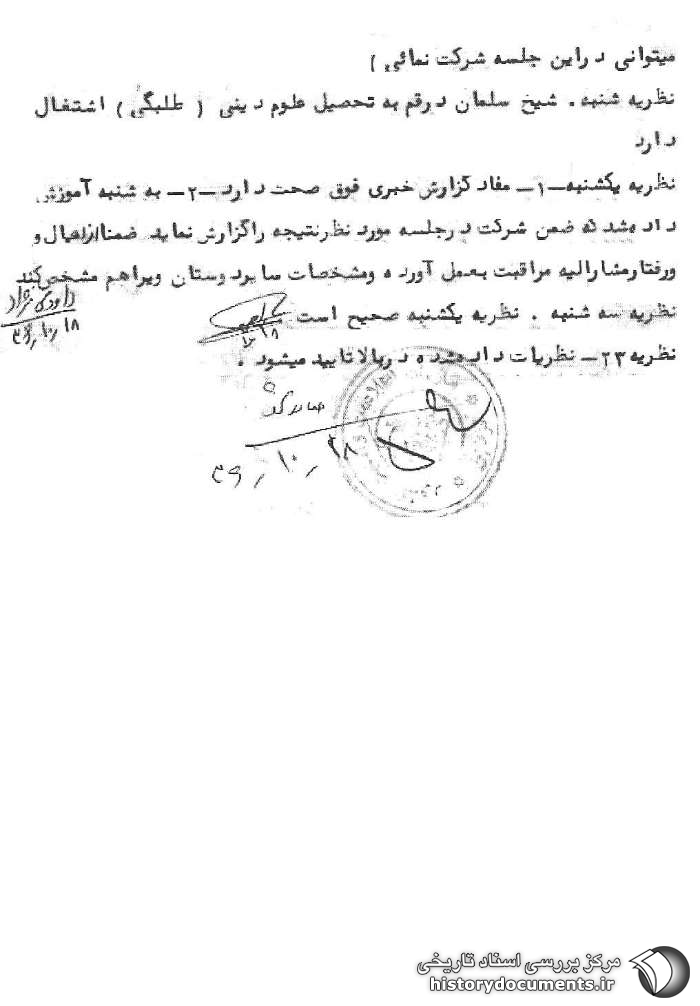 میتوانی دراین جلسه شرکت نمائی )
نظریه شنبه . شیخ سلمان درقم به تحصیل علوم دینی ( طلبگی ) اشتغال
دارد
نظریه یکشنبه -۱- مفاد گزارش خبری فوق صحت دارد -۲- به شنبه آموزش
داده شد که ضمن شرکت درجلسه مورد نظرنتیجه راگزارش نماید ضمناازاعمال و
ورفتارمشارالیه مراقبت بعمل آورده ومشخصات سایردوستان ویراهم مشخص کند
نظریه سه شنبه . نظریه یکشنبه صحیح است
داودی نژاد
۳۶٫۱۰٫۱۸
نظریه ۲۳ - نظریات داده شده دربالا تایید میشود .
۳۶٫۱۰٫۲۸
مرکز بررسی اسناد تاریخی
historydocuments.ir